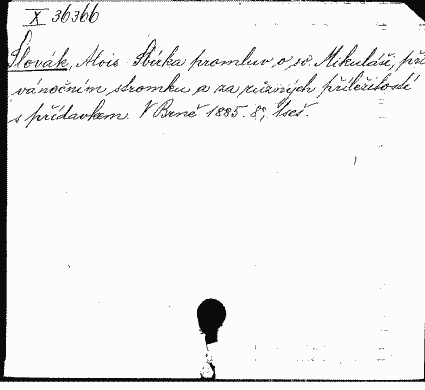 X 36366
Slovák, Alois Sbírka promluv o sv. Mikuláši, při
vánočním stromku a za různých příležitostí
s přídavkem. V Brně 1885. 8°, 1seš.